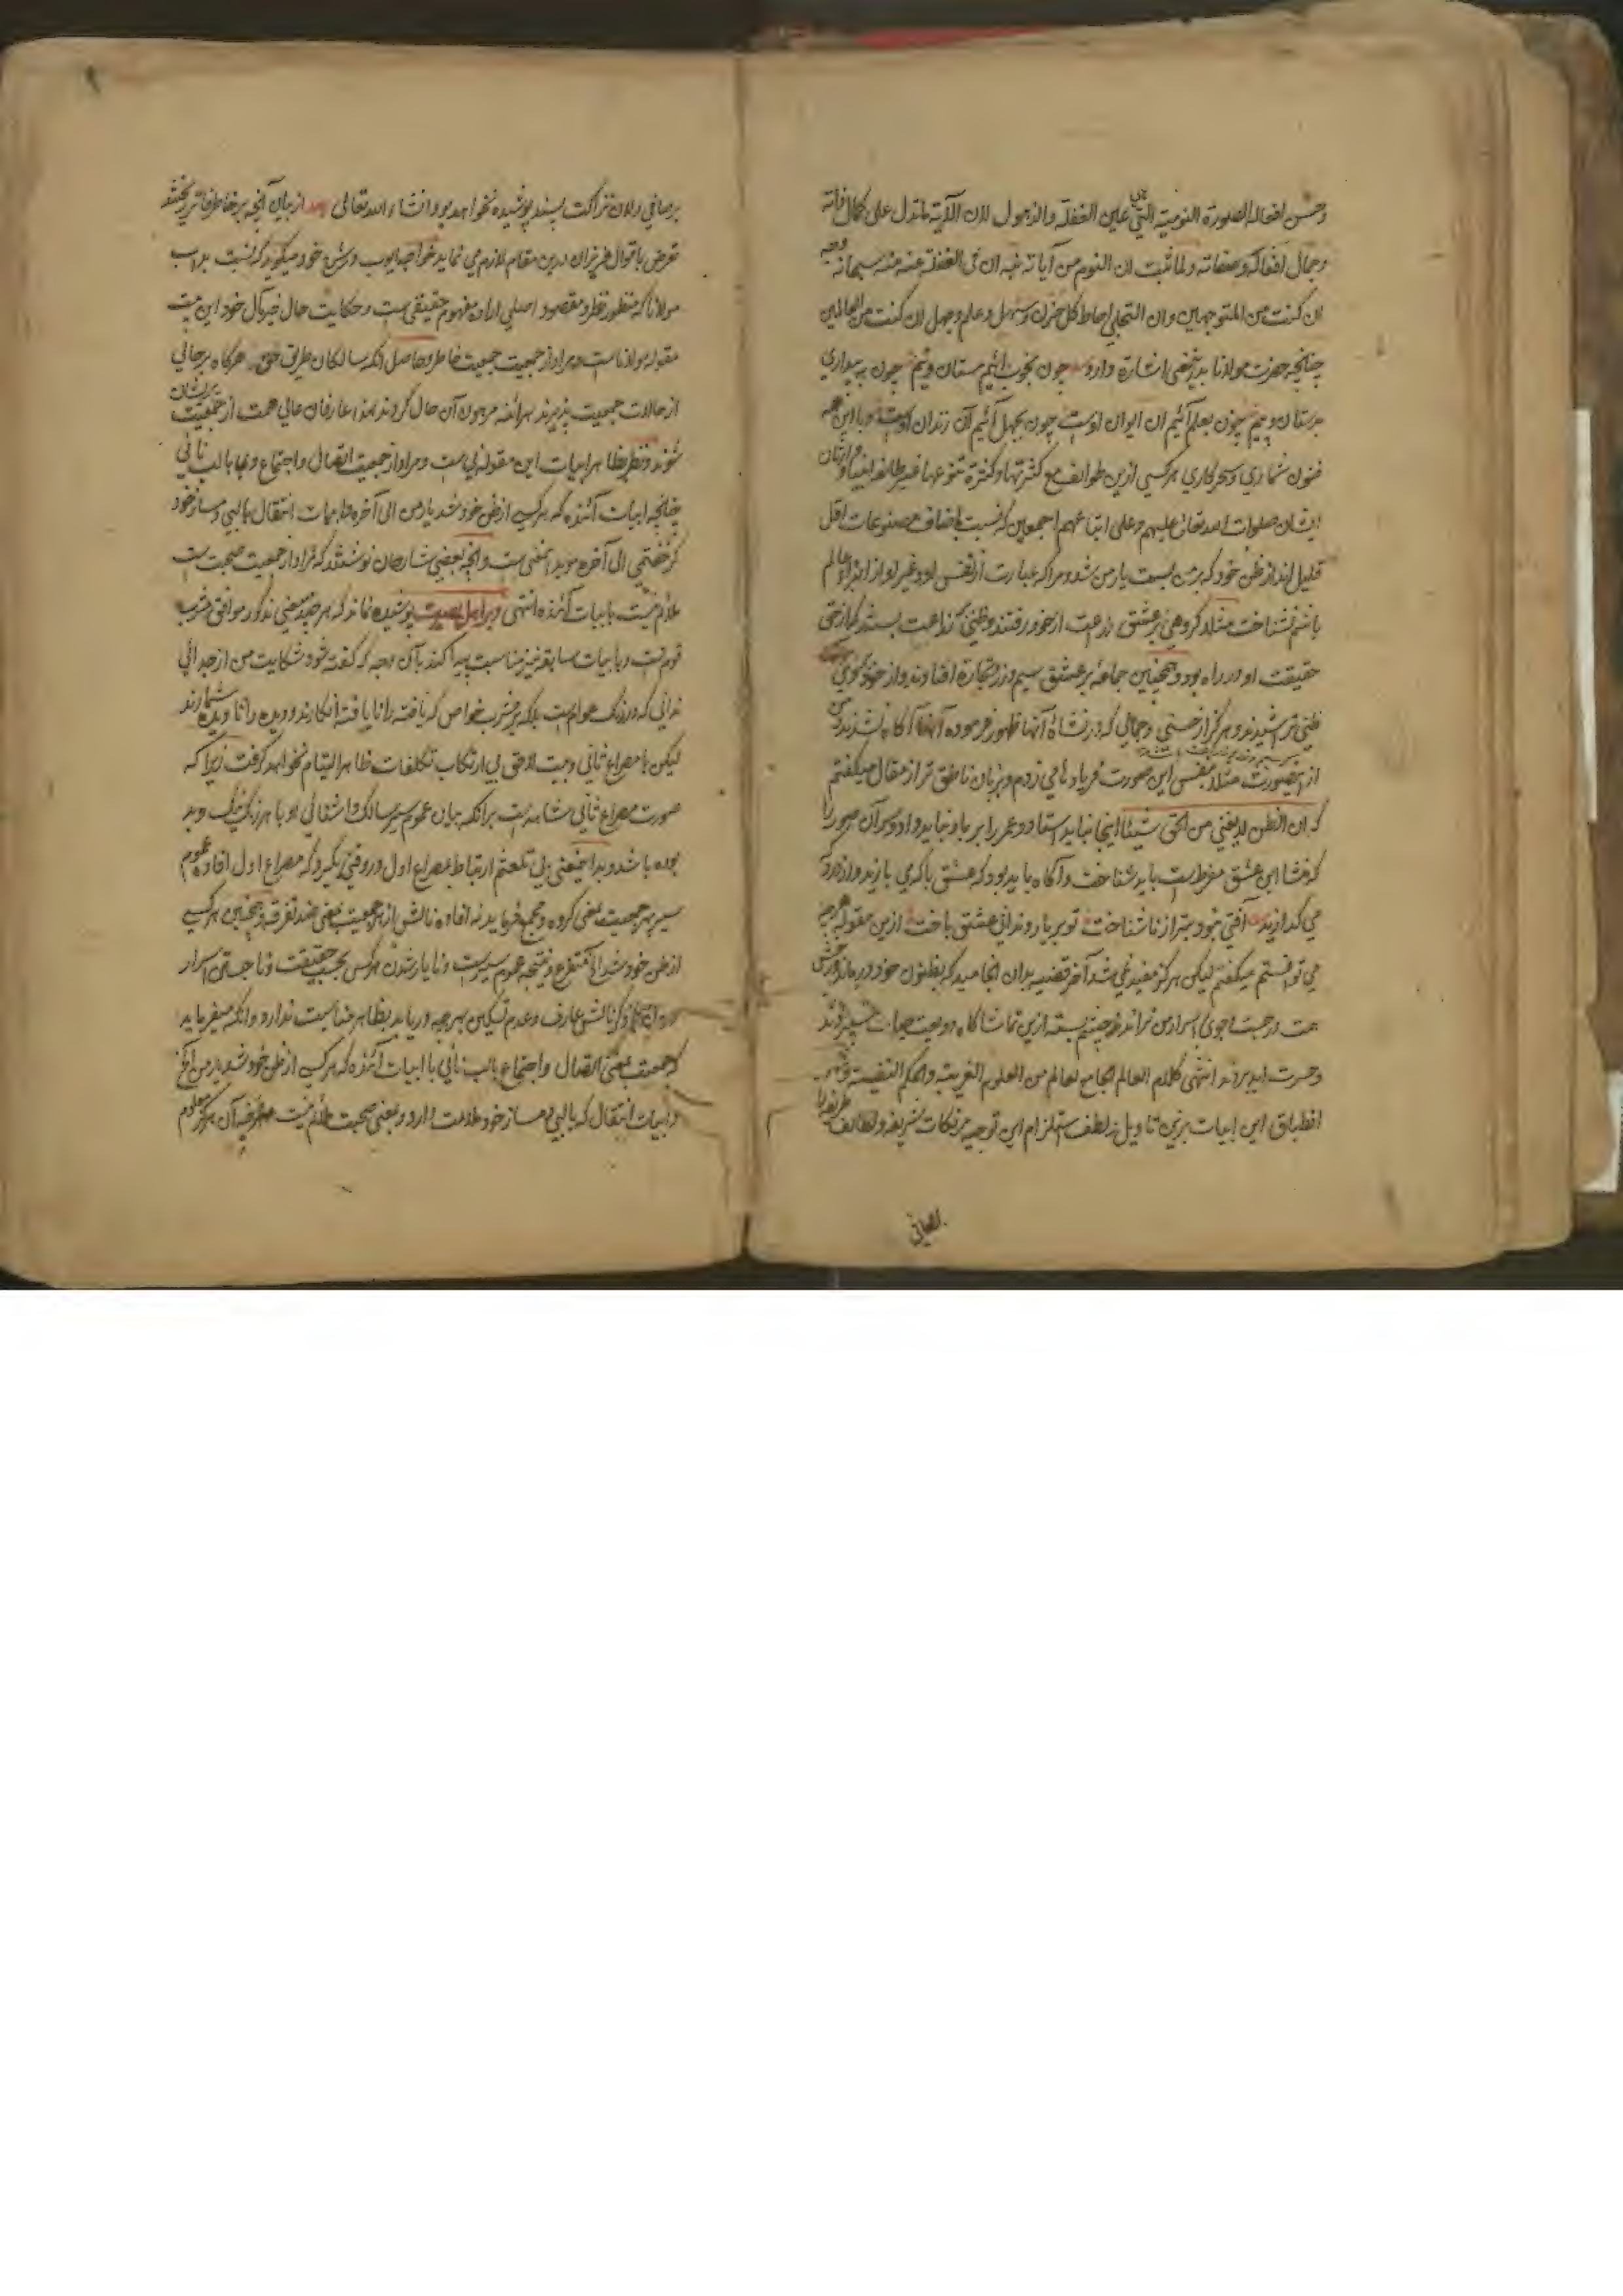 وحسن افعاله الصورة النومیة التی هی عین الغفلة والذهول لان الآیة ماتدل علی کمال ذاته
وجمال افعاله وصفاته ولما ثبت ان النوم من آیاته ثبت ان فی الغفلة عنه منه سبحانه وجه
ان کنت من المتوجهین وان التجلی احاط کل حزن وسهل وعلم وجهل ان کنت من العالمین
چنانچه حضرت مولانا بدینمعنی اشارة دارد چون بخوب آئیم مستان ویئم چون به بیداری
بدستان وییم چون بعلم آئیم آن ایوان اوست چون بجهل آئیم آن زندان اوست وبا این همه
فنون شماری وسحرکاری هرکسی ازین طوائف مع کثرتها وکثرة تنوعها غیر طائفه انبیا
ایشان صلوات الله تعالی علیهم وعلی اتباعهم اجمعین که نسبت باضعاف مصنوعات اقل
قلیل اند از ظن خود که برمن بست یار من شد ومرا که عبارت از نفس او وغیر او از اجزای عالم
باشم نشناخت مثلا گروهی بر عشق زراعت از خود رفتند وظنی که زراعت بستند
حقیقت او در راه بود وهمچنین جماعة بر عشق سیم وزر وتجارة افتادند واز خود
ظنی تراشیدند وهرگز از حسنی وجمالی که در نشاة آنها ظهور فرموده آنها آگاه نشدند من
از هر صورت مثلا بنفس این صورت فریادها می زدم وبزبان ناطق تر از مقال میگفتم
که ان الظن لا یغنی من الحق شیئا اینجا نباید استاد وعمر را بر باد نباید داد وسر آن صور را
که منشا این عشق مفرطست باید شناخت وآگاه باید بود که عشق با که می بازند واز درد
می گدازند آفتی نبود بتر از ناشناخت تو بر یار وندانی عشق باخت ازین مقوله هرچه
می توانستم میگفتم لیکن هرگز مفید نمی شد آخر قضیه بدان انجامید که بظنون خود درماندند
همت در جست وجوی اسرار من نراندند وچشم بسته ازین تماشاگاه ودیعت حیات سپردند
وحسرت ابد بردند انتهی کلام العالم الجامع لعالم من العلوم الغریبة والحکم النفیسة
انطباق این ابیات برین تاویل لطف استلزام این توجیه مر نکات شریفه ولطائف ظریفه را
برصافی دلان نزاکت پسند پوشیده نخواهد بود انشاء الله تعالی بعد از بیان آنچه بر خاطر فاتر ریختند
تعرض باقوال عزیزان درین مقام لازم می نماید خواجه ایوب در شرح خود میگوید که نسبت بدأب
مولانا که منظور نظر ومقصود اصلی ایشان مفهوم حقیقی ست وحکایت حال خیر مآل خود این بیت
مقوله مولاناست ومراد از جمعیت جمعیت خاطر وحاصل آنکه سالکان طریق حق هرگاه برحالی
از حالات جمعیت پذیرند هرآئنه مرهون آن حال گردند لهذا عارفان عالی همت از جمعیت پریشان
شوند ونظر بظاهر ابیات این مقوله نی ست ومراد از جمعیت اتصال واجتماع وی با لب نائی
چنانچه ابیات آئنده که هر کسی از ظن خود شد یار من الی آخره وابیات انتقال با لب دمساز خود
گر جفتمی الی آخره موید این معنی ست وآنچه بعضی شارحان نوشتند که مراد از جمعیت صحبت ست
ملائم نیست بابیات آئنده انتهی وبر اهل بصیرت پوشیده نماند که هرچند معنی مذکور موافق مشرب
قوم ست وبا بیات سابقه نیز مناسبت پیدا کند بآن وجه که گفته شود شکایت من از جدائی
ندانی که در رنگ عوام است بلکه بر مشرب خواص که یافته را نایافته انگارند ودیده را نادیده شمارند
لیکن با مصراع ثانی وبیت لاحق بی ارتکاب تکلفات ظاهر التیام نخواهد گرفت زیرا که
صورت مصراع ثانی مشاهد ست بر آنکه بیان عموم سیر سالک واشنائی او با هر نیک وبد
بوده باشد وبدا بمعنی بی تکلف ارتباط بمصراع اول در وقتی گیرد که مصراع اول افاده عموم
سیر بهر جمعیت بمعنی گروه ومجمع فرماید نه افاده نالش از هر جمعیت بمعنی ضد تفرقه وهمچنین هر کسی
از ظن خود شد الخ متفرع ونتیجه عموم سیرست ونایار شدن هر کس بحسب حقیقت وناجستن اسرار
عارف وعدم تسکین بهر چه دریابد بظاهر مناسبت ندارد وآنکه میفرماید
که جمعیت بمعنی اتصال واجتماع با لب نائی با ابیات آئنده که هر کسی از ظن خود شد یار من الخ
وابیات انتقال که با لب دمساز خود ملائمت دارد وبمعنی صحبت ملائم نیست آن هرگز معلوم
بصافی